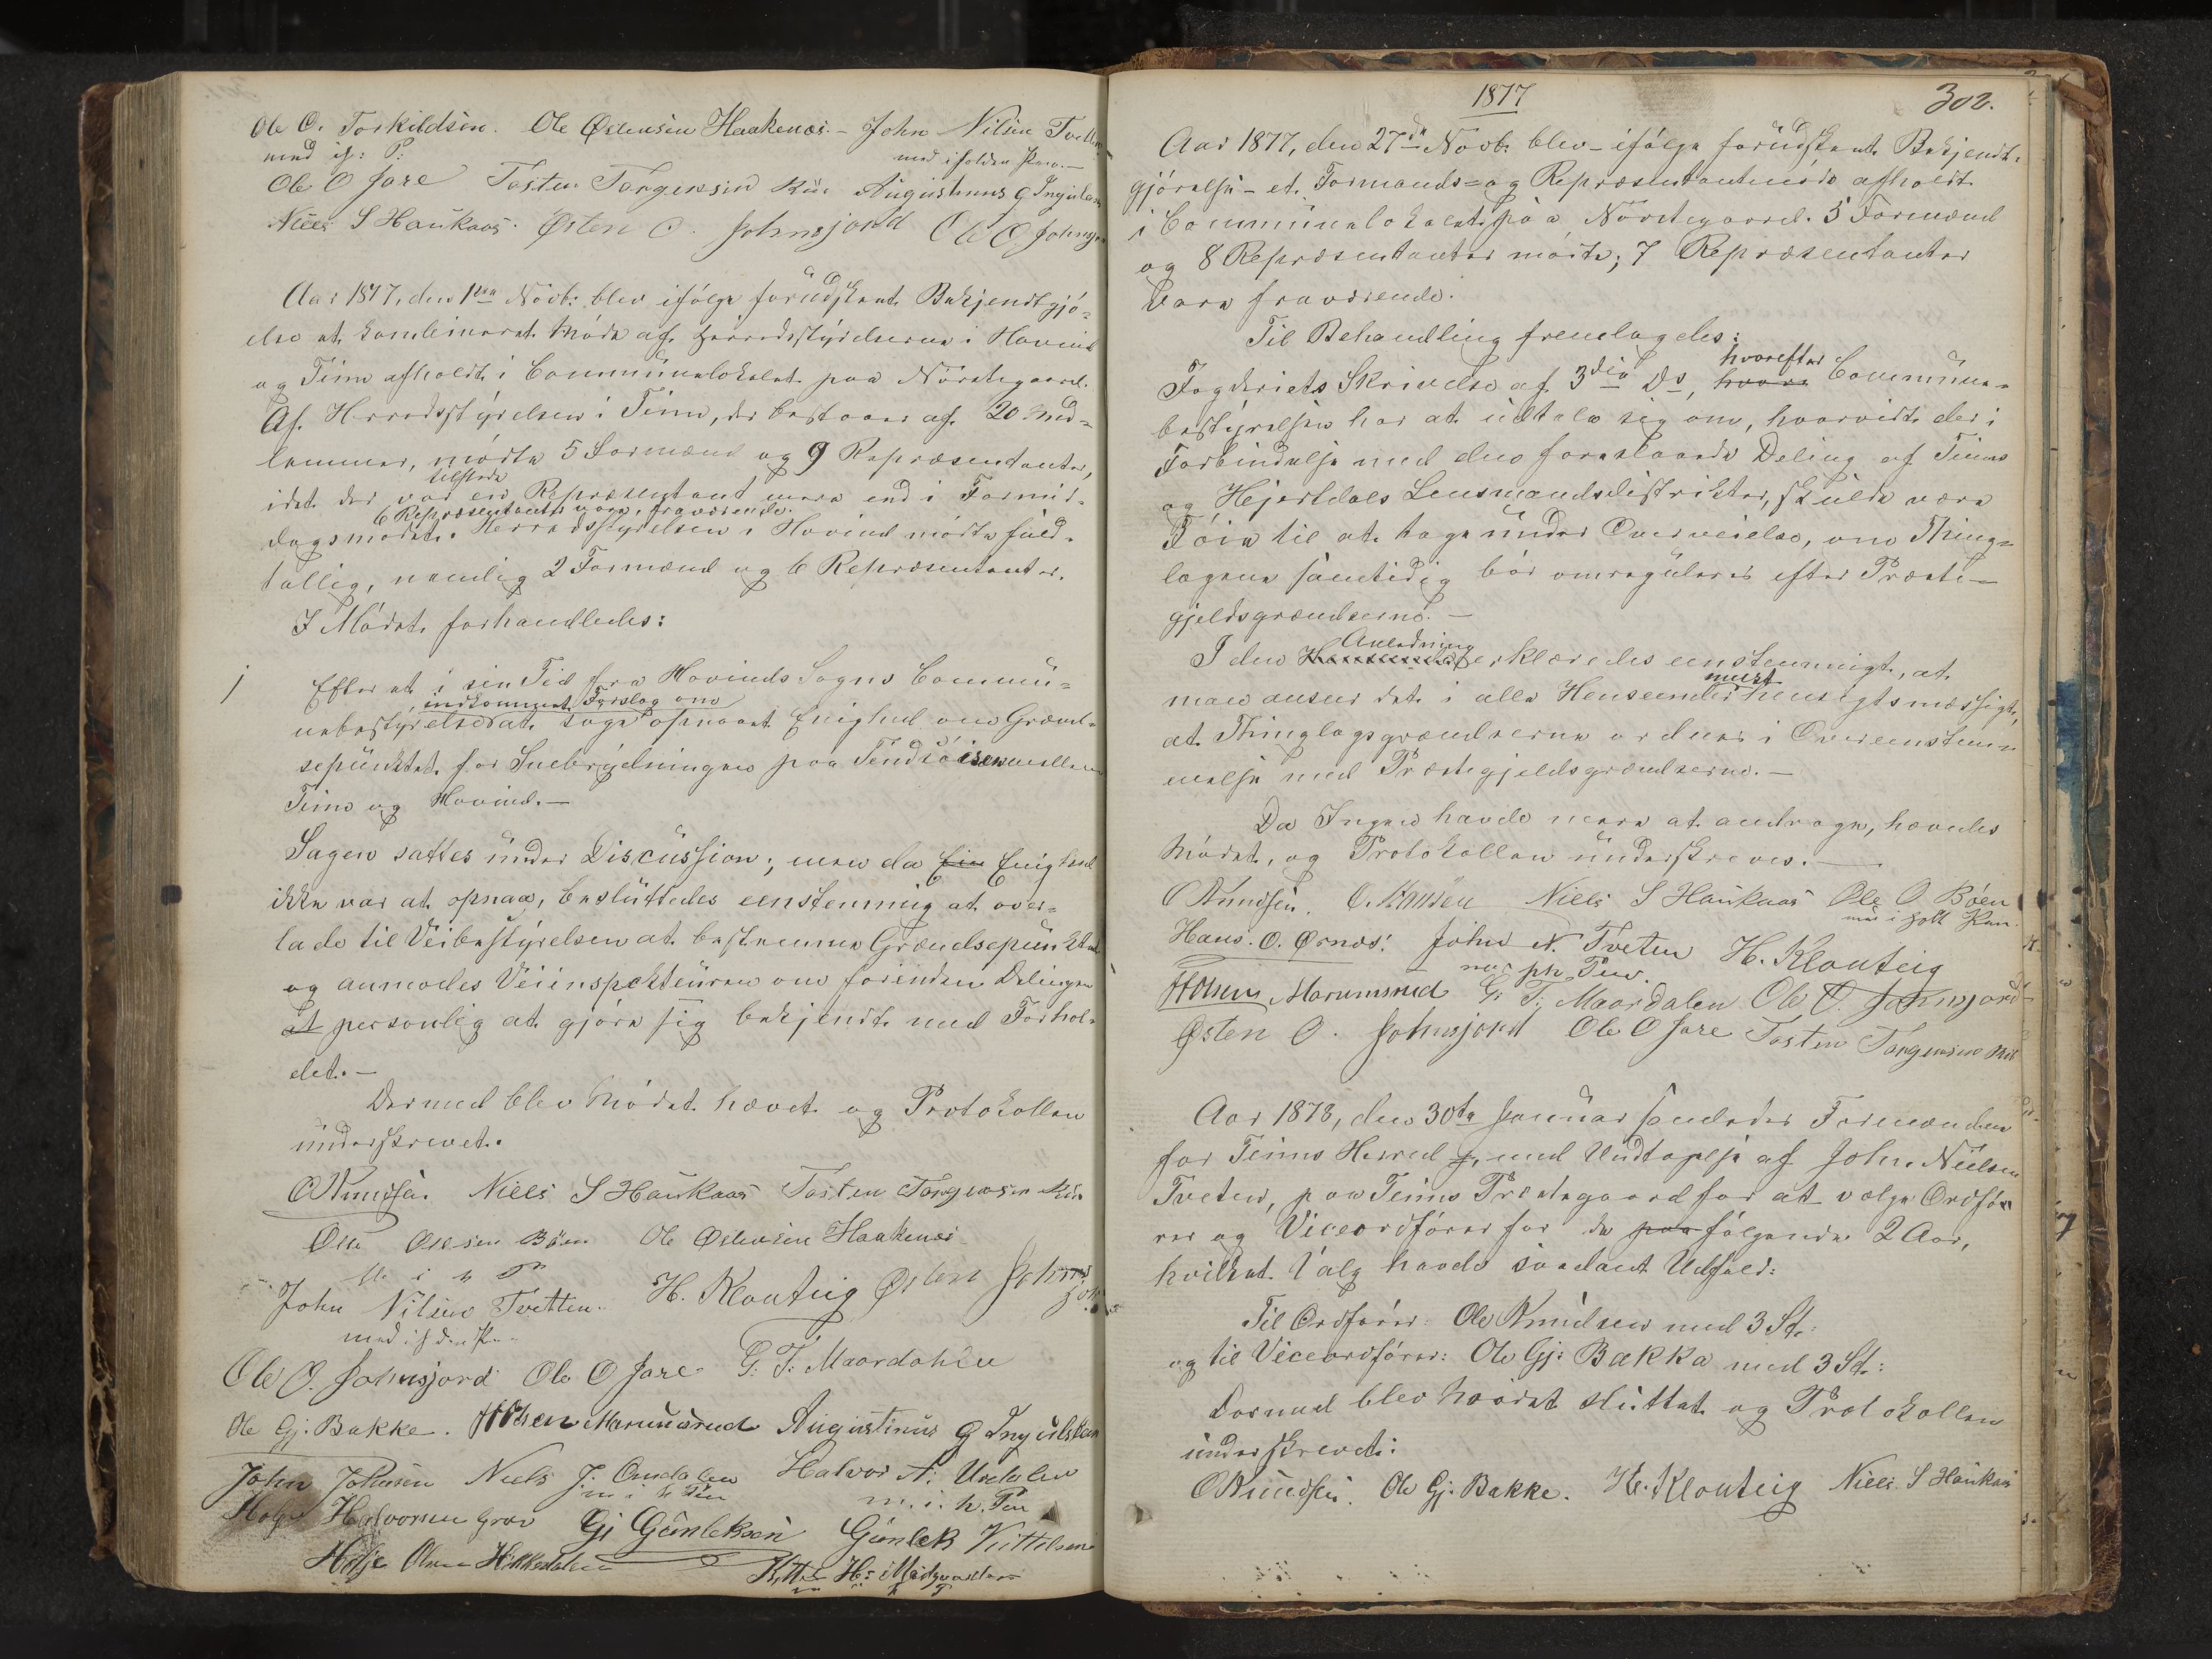 Ole O. Torkildsen. Ole Østensen Haakenæs. - John Nilsen Tvetten
med if: P: med iholden Pen. -
Ole O Jore Tosten Torgersen Rui Augustinus G Ingulsen
Niels S Haukaas. Østen O. Johnsjord Ole O. Johnsjor
Aar 1877, den 1ste Novb: blev ifølge forudskeet Bekjendtgjø-
else et kombineret Møde af Herredsstyrelserne i Hovind
og Tinn afholdt i Communelokalet paa Nørstegaard.
Af Herredsstyrelsen i Tinn, der bestaaer af 20 Med-
lemmer, mødte 5 Formænd og 9 Repræsentanter,
tilstede
idet der var en Repræsentant mere end i Formid-
6 Repræsentanter vare fraværende.
dagsmødet. Herredsstyrelsen i Hovind mødte fuld-
tallig, nemlig 2 Formænd og 6 Repræsentanter.
I Mødet forhandledes:
1
Efter at i sin Tid fra Hovinds Sogns Commu-
indkommet Forslag om
nebestyrelse at søge opnaaet Enighed om Grænd-
sepunktet for Snebrydningen paa Tindsøisen mellem
Tinn og Hovind. -
Sagen sattes under Discussion; men da Ein Enighed
ikke var at opnaa, besluttedes eenstemmig at over-
lade til Veibestyrelsen at bestemme Grændsepunktet
og anmodes Veiinspekteuren om forinden Delingen
at personlig at gjøre sig bekjendt med Forhol-
det. -
Dermed blev Mødet hævet og Protokollen
underskrevet.
O Knudsen. Niels S Haukaas Tosten Torgersen Rui
Ole Olesen Bøen Ole Østensen Haakenæs
M i h P
John Nilsen Tvetten. H. Klouteig Østen Johns
jord
med if den Pen
Ole O. Johnsjord Ole O Jore G. T. Maardahlen
Ole Gj. Bakke. H Olsen Marumsrud Augustinus G Ingulsen
John Johnsen Niels J. Omdalen Halvor A. Urdalen
m i h Pen m. i. h. Pen
Helge Halvorsen Grov Gj Gunleksen Gunlek Kittelsen
Helje Olsen Kittel H. Midgaarden
1877
302.
Aar 1877, den 27de Novb: blev - ifølge forudskeet Bekjendt-
gjørelse - et Formands- og Repræsentantmøde afholdt
i Communelokalet paa Nørstegaard. 5 Formænd
og 8 Repræsentanter mødte; 7 Repræsentanter
vare fraværende.
Til Behandling fremlagdes:
hvorefter
Fogderiets Skrivelse af 3die Ds, hvori Commune-
bestyrelsen har at udtale sig om, hvorvidt der i
Forbindelse med den foreslaaede Deling af Tinns
og Hjertdals Lensmandsdistrikter, skulde være
Føie til at tage under Overveielse, om Thing-
lagene samtidig bør omreguleres efter Præste-
gjeldsgrændserne. -
Anledning
I den Henseende erklæredes eenstemmigt, at
mest
man anseer det i alle Henseender hensigtsmæssigt,
at Thinglagsgrændserne ordnes i Overeenstem-
melse med Præstegjeldsgrændserne. -
Da Ingen havde mere at andrage, hævedes
Mødet, og Protokollen underskreves. -
O Knudsen. O. Hansen Niels S Haukaas Ole O. Bøen
med i holt Pen.
Hans. O. Ørnæs. John N. Tveten H. Klouteig
med ph Pen.
H Olsen Marumsrud G: T: Maardalen Ole O. Johnsjord
Østen O. Johnsjord Ole O Jore Tosten Torgersen Rui
Aar 1878, den 30te Januar samledes Formændene
for Tinns Herred, med Undtagelse af John Nielsen
Tveten, paa Tinns Præstegaard for at vælge Ordfø-
rer og Viceordfører for de paa følgende 2 Aar,
hvilket Valg havde saadant Udfald:
Til Ordfører: Ole Knudsen med 3 St:
og til Viceordfører: Ole Gj: Bakka med 3 St:
Dermed blev Mødet sluttet og Protokollen
underskrevet:
O Knudsen. Ole Gj. Bakke. H. Klouteig Niels S Haukaas